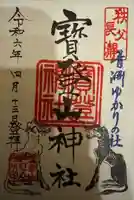 秩父
長瀞
青淵ゆかりの社
寳登山神社
令和六年四月十三日登拝